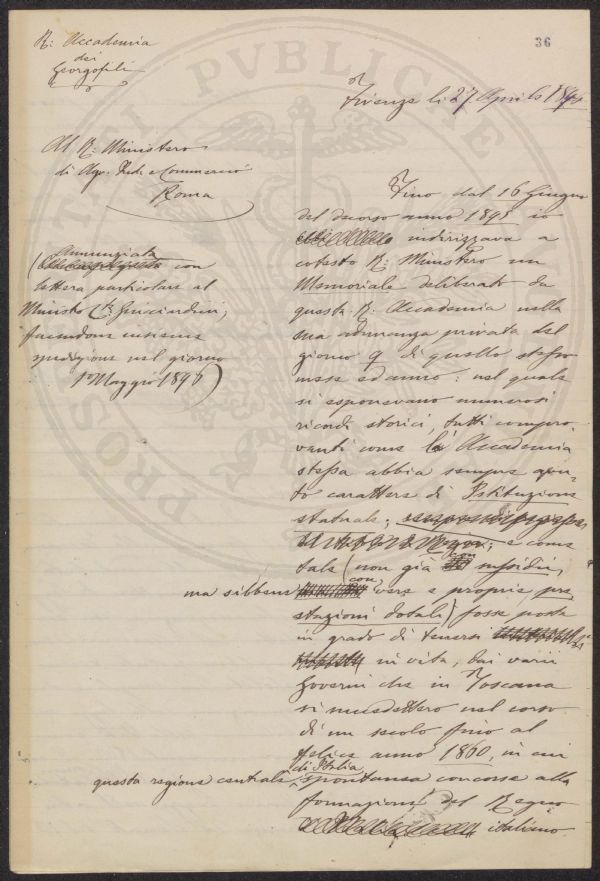 R: Accademia
dei
Georgofili
36
Firenze li 27 Aprile 1896
Al R. Ministero
di Agr. Ind. e Commercio
Roma
(Annunziata
con
lettera particolare al
Ministro Guicciardini,
facendone
spedizione nel giorno
1º Maggio 1896)
Fino dal 16 Giugno
del decorso anno 1895 io
indirizzava a
cotesto R. Ministero un
Memoriale deliberato da
questa R. Accademia nella
sua adunanza privata del
giorno 9 di quello stesso
mese ed anno: nel quale
si esponevano numerosi
ricordi storici, tutti compro
vanti come l'Accademia
stessa abbia sempre avu-
to carattere di Istituzione
statuale;
e come
tale (non già con sussidii,
ma sibbene con vere e proprie pre
stazioni dotali) fosse posta
in grado di tenersi
in vita, dai varii
Governi che in Toscana
si succedettero nel corso
di un secolo fino al
felice anno 1860, in cui
questa regione centrale di Italia spontanea concorse alla
formazione del Regno
italiano.
PROSPERITATI PVBLICAE